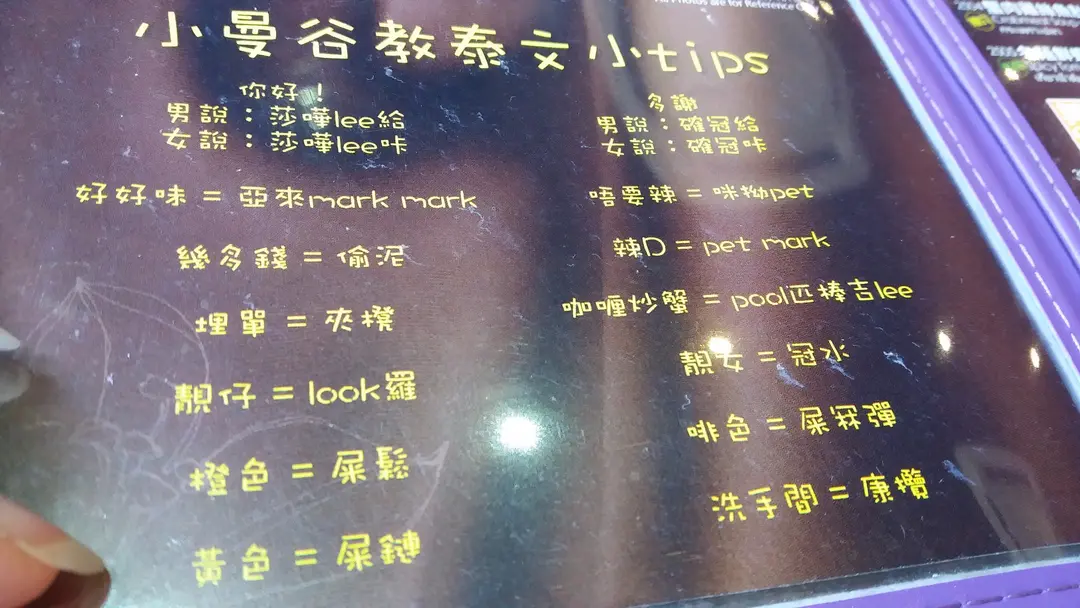 All Photos are for Reference
小曼谷教泰文小tips
你好！
男說：莎嘩lee給
女說：莎嘩lee咔
好好味 = 亞來mark mark
幾多錢 = 偷泥
埋單 = 夾櫈
靚仔 = look羅
橙色 = 屎鬆
黃色 = 屎鏈
多謝
男說：確冠給
女說：確冠咔
唔要辣 = 咪拗pet
辣D = pet mark
咖喱炒蟹 = pool匹棒吉lee
靚女 = 冠水
啡色 = 屎冧彈
洗手間 = 康攬